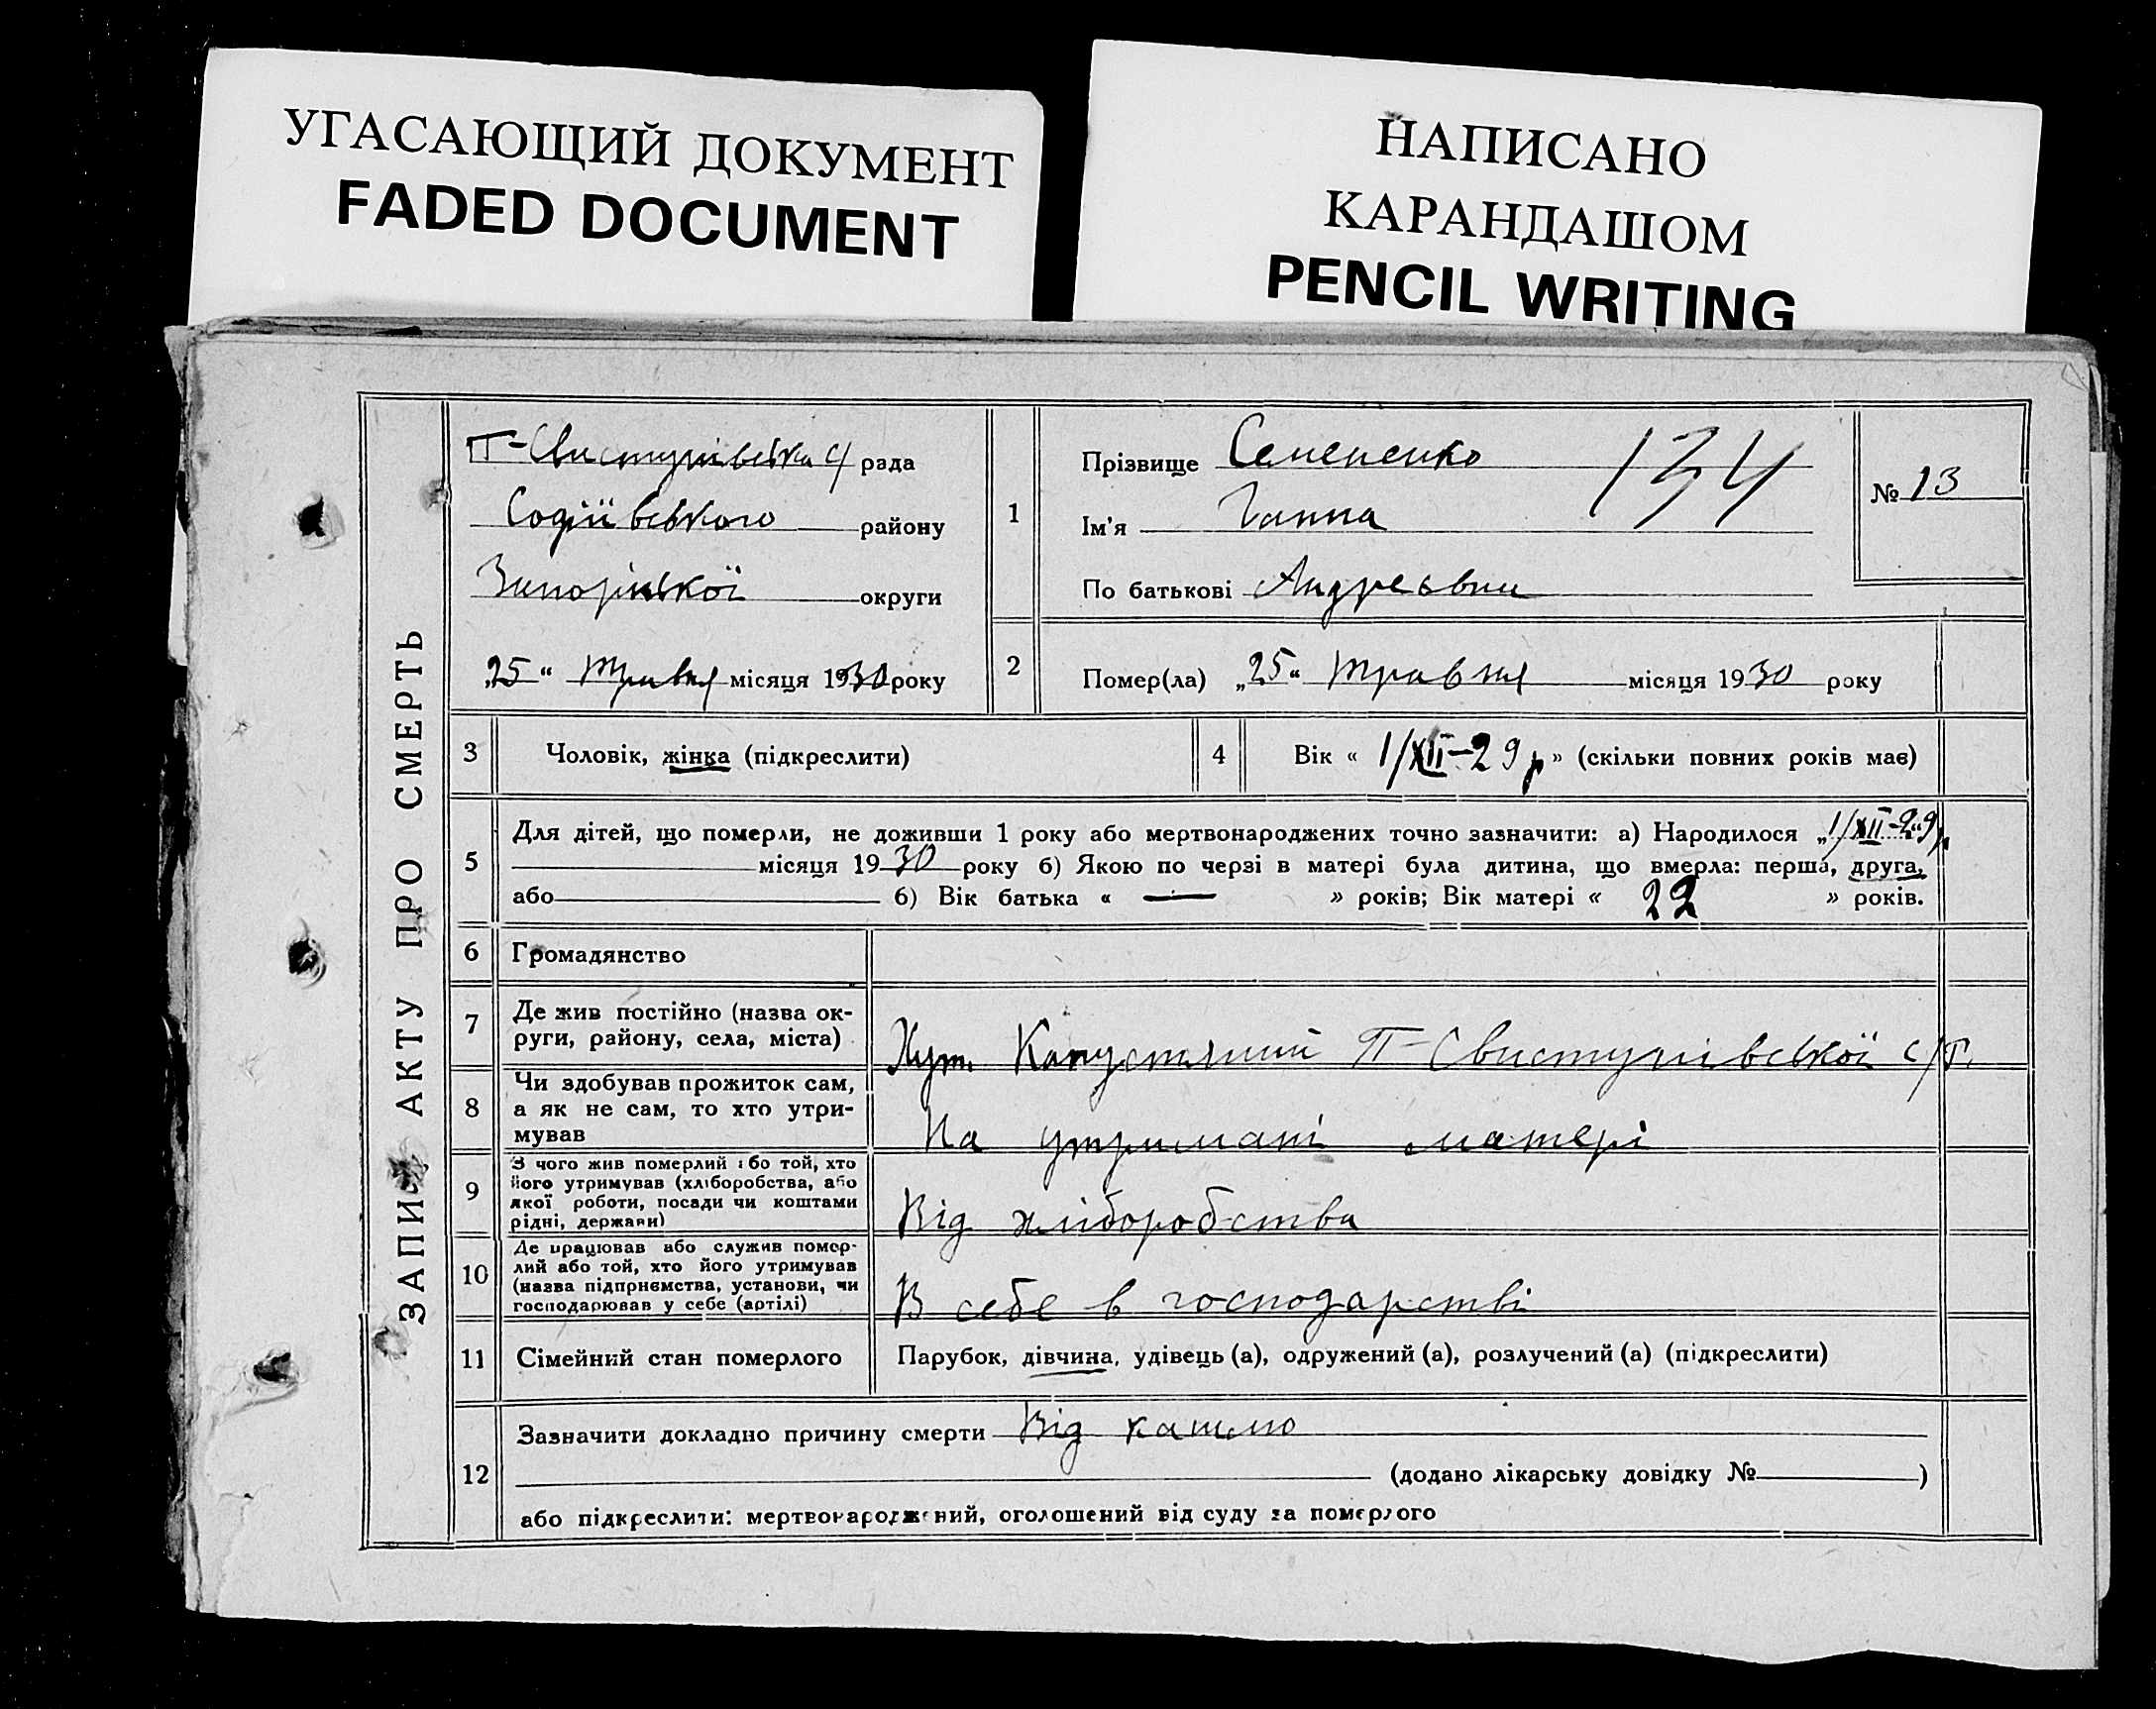 УГАСАЮЩИЙ ДОКУМЕНТ
FADED DOCUMENT
НАПИСАНО
КАРАНДАШОМ
PENCIL WRITING
ЗАПИС АКТУ ПРО СМЕРТЬ
П-Свистунівська с/ рада
Софіївського району
Запоріської округи
„25“ Травня місяця 1930 року
1
Прізвище Семененко
134
Ім'я Ганна
По батькові Андреевна
№ 13
2
Помер(ла) „25“ Травня місяця 1930 року
3 Чоловік, жінка (підкреслити)
4 Вік « 1/XII-29 р » (скільки повних років має)
5
Для дітей, що померли, не доживши 1 року або мертвонароджених точно зазначити: а) Народилося „1/XII-29р
місяця 1930 року б) Якою по черзі в матері була дитина, що вмерла: перша, друга,
або б) Вік батька « — » років; Вік матері « 22 » років.
6 Громадянство
7
Де жив постійно (назва ок-
руги, району, села, міста)
Хут. Капустяний П-Свистунівської с/р.
8
Чи здобував прожиток сам,
а як не сам, то хто утри-
мував
На утримані матері
9
З чого жив померлий або той, хто
його утримував (хліборобства, або
якої роботи, посади чи коштами
рідні, держави)
Від хліборобства
10
Де працював або служив помер-
лий або той, хто його утримував
(назва підприємства, установи, чи
господарював у себе (артілі)
В себе в господарстві
11 Сімейний стан померлого
Парубок, дівчина, удівець (а), одружений (а), розлучений (а) (підкреслити)
12
Зазначити докладно причину смерти Від кашлю
(додано лікарську довідку № )
або підкреслити: мертвонароджений, оголошений від суду за померлого